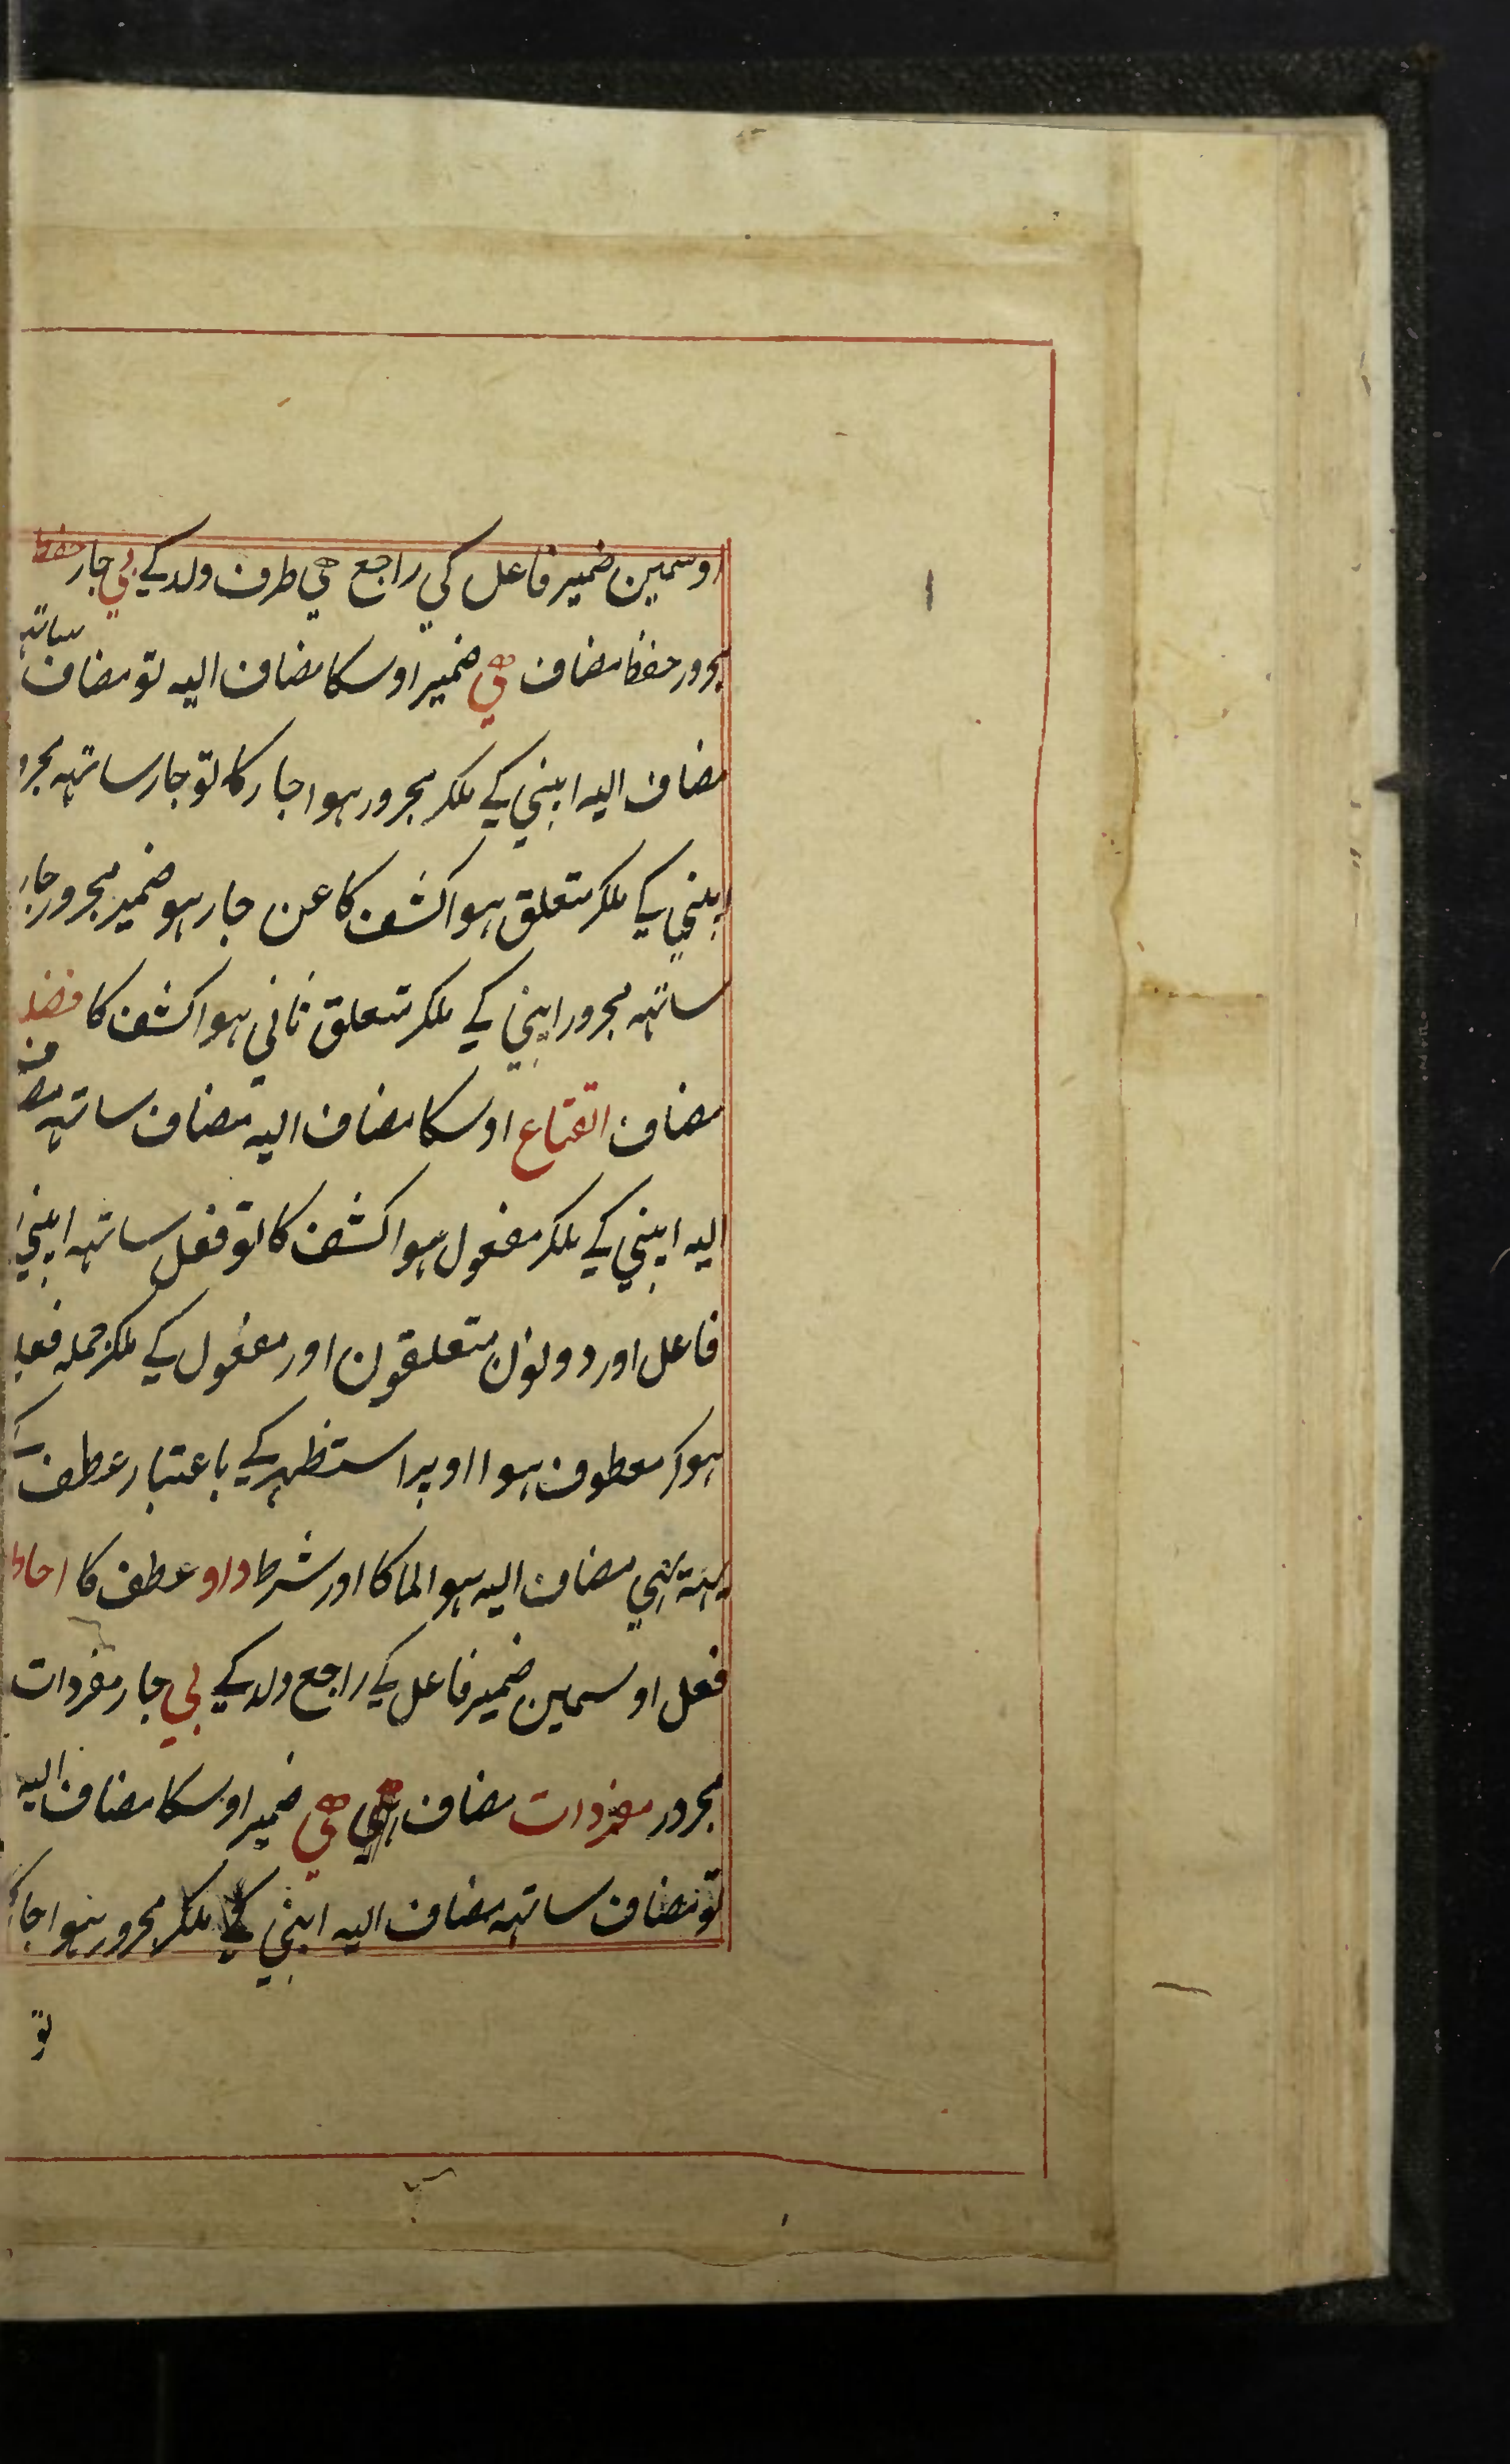 اوسمین ضمیر فاعل کی راجع هی طرف ولد کے بی جار حفظ
مجرور حفظ مضاف هي ضمیر اوسکا مضاف الیه تو مضاف ساتہه
مضاف الیه اپنی کے ملکر مجرور ہوا جار کا تو جار ساتہه مجرو
اپنی کے ملکر متعلق ہوا کشف کا عن جار ہو ضمیر مجرور جار
ساتہه مجرور اپنی کے ملکر متعلق ثانی ہوا کشف کا
مضاف القناع اوسکا مضاف الیه مضاف ساتہه مضاف
الیه اپنی کے ملکر مفعول ہوا کشف کا تو فعل ساتہه اپنی
فاعل اور دونون متعلقون اور مفعول کے ملکر جمله فعلیه
ہوکر معطوف ہوا اوپر استظہر کے باعتبار عطف کے
یہه بہی مضاف الیه ہوا لما کا اور شرط واو عطف کا احاط
فعل اوسمین ضمیر فاعل کے راجع ولد کے بی جار مفردات
مجرور مفردات مضاف هي ضمیر اوسکا مضاف الیه
تو مضاف ساتہه مضاف الیه اپنی کے ملکر مجرور ہوا جار کا
تو